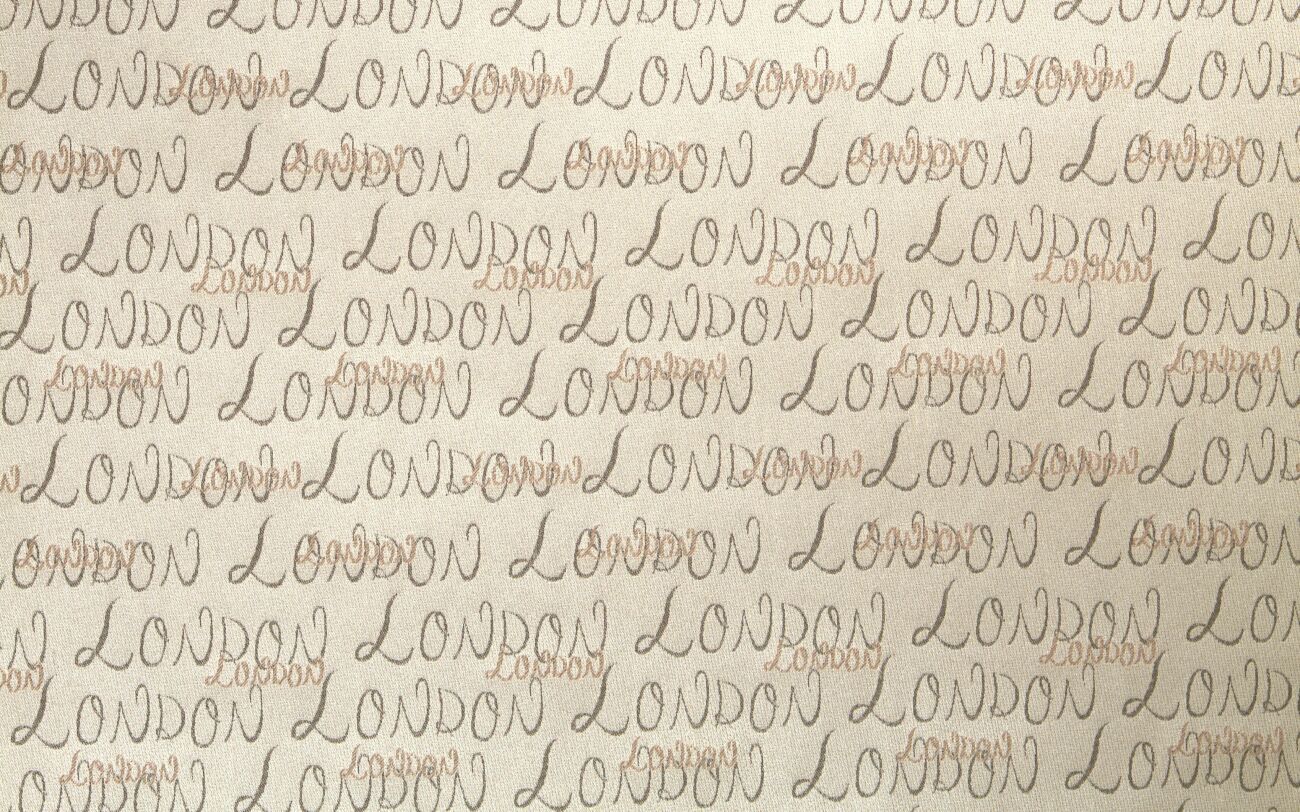 LONDON LONDON LONDON LONDON LONDON
LONDON LONDON LONDON LONDON LONDON
London London London London
ONDON LONDON LONDON LONDON LONDON
London London London London London
N LONDON LONDON LONDON LONDON LON
London London London London
LONDON LONDON LONDON LONDON LONDO
London London London London London
ONDON LONDON LONDON LONDON LONDON
LONDON LONDON LONDON LONDON LONDON
London London London London
LONDON LONDON LONDON LONDON LONDON
London London London London London
N LONDON LONDON LONDON LONDON LON
London London London London
LONDON LONDON LONDON LONDON LOND
London London London London London
LONDON LONDON LONDON LONDON LONDON